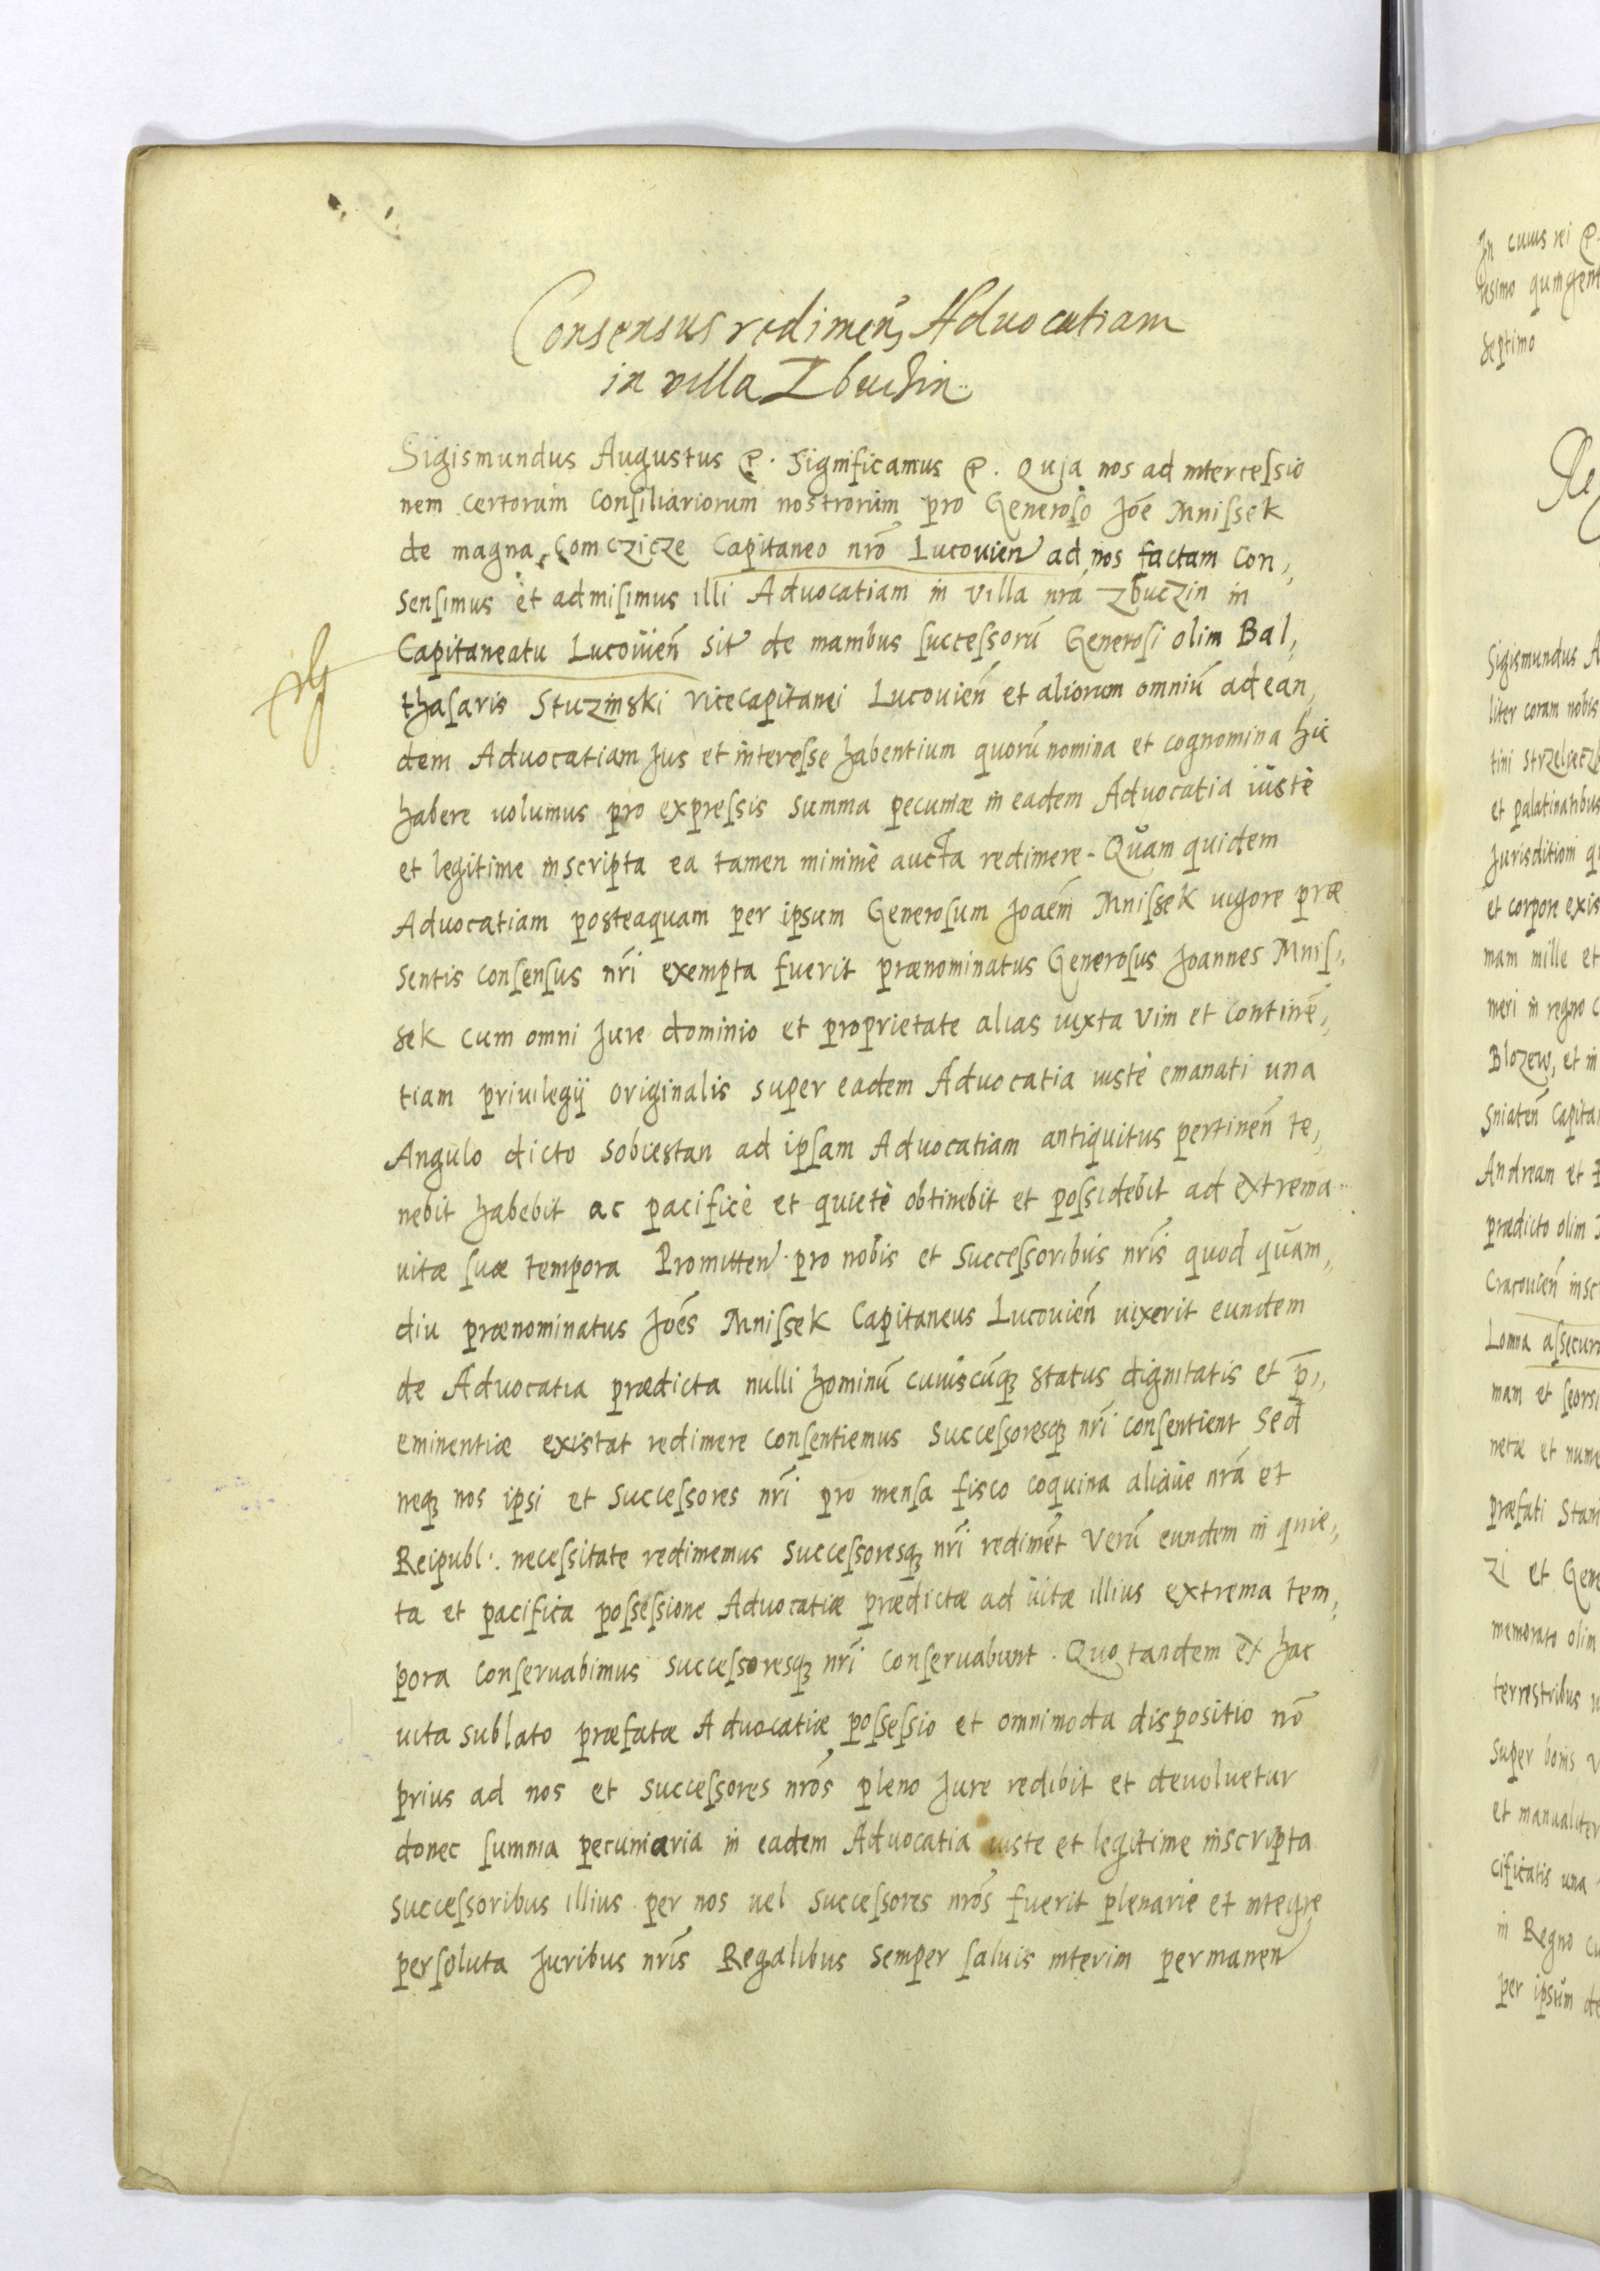 Consensus redimen Advocatiam
in villa Zbuchin
Sigismundus Augustus etc. Significamus etc. Quja nos ad intercessio
nem certorum Consiliariorum nostrorum pro Generoso Joē Mnissek
de magna Comczicze Capitaneo nrō Lucovien ad nos factam Con,,
sensimus et admisimus illi Advocatiam in villa nrā Zbuczin in
Capitaneatu Lucovień sit de manibus successorū Generosi olim Bal,
thasaris Stuzinski vicecapitanei Lucovień et aliorum omniū ad ean,
dem Advocatiam Jus et interesse habentium quorū nomina et cognomina hic
habere volumus pro expressis summa pecuniæ in eadem Advocatia iustè
et legitime inscripta ea tamen minimè aucta redimere - Quam quidem
Advocatiam posteaquam per ipsum Generosum Joaēm Mnissek vigore præ
sentis consensus nrī exempta fuerit prænominatus Generosus Joannes Mnis,,
sek cum omni Jure dominio et proprietate alias iuxta vim et continē,,
tiam privilegij originalis super eadem Advocatia iustè emanati una
Angulo dicto Sobiestan ad ipsam Advocatiam antiquitus pertineñ te,
nebit habebit ac pacificè et quietè obtinebit et possidebit ad extrema
vitæ suæ tempora Promitteñ pro nobis et Successoribus nrīs quod quam,,
diu prænominatus Joēs Mnissek Capitaneus Lucovień vixerit eundem
de Advocatia prædicta nulli hominū cuiuscūqꝫ status dignitatis et p̄,,
eminentiæ existat redimere consentiemus Successoresqꝫ nrī consentient Sed
neqꝫ nos ipsi et Successores nrī pro mensa fisco coquina aliaue nrā et
Reipubl: necessitate redimemus Successoresqꝫ nrī redimēt Verū eundem in quie,,
ta et pacifica possessione Advocatiæ prædictæ ad vitæ illius extrema tem,
pora conservabimus successoresqꝫ nrī conservabunt. Quo tandem ex hac
vita sublato præfatæ Advocatiæ possessio et omnimoda dispositio nō
prius ad nos et successores nrōs pleno Jure redibit et devolvetur
donec summa pecuniaria in eadem Advocatia iuste et legitime inscripta
successoribus illius per nos vel Successores nrōs fuerit plenarie et integre
persoluta Juribus nrīs Regalibus semper salvis interim permaneñ
In cuius rei etc.
Septimo
Sigismundus
liter coram nobis
et palatinatibus
et corpore
mam mille et
meri in regno
Blozew, et in
Andream et
prædicto olim
Cracovień
Lomna
mam et
netæ et
præfati
zi et
memorato olim
terrestribus
super bonis
et manualiter
cificatis una
in Regno
per ipsum